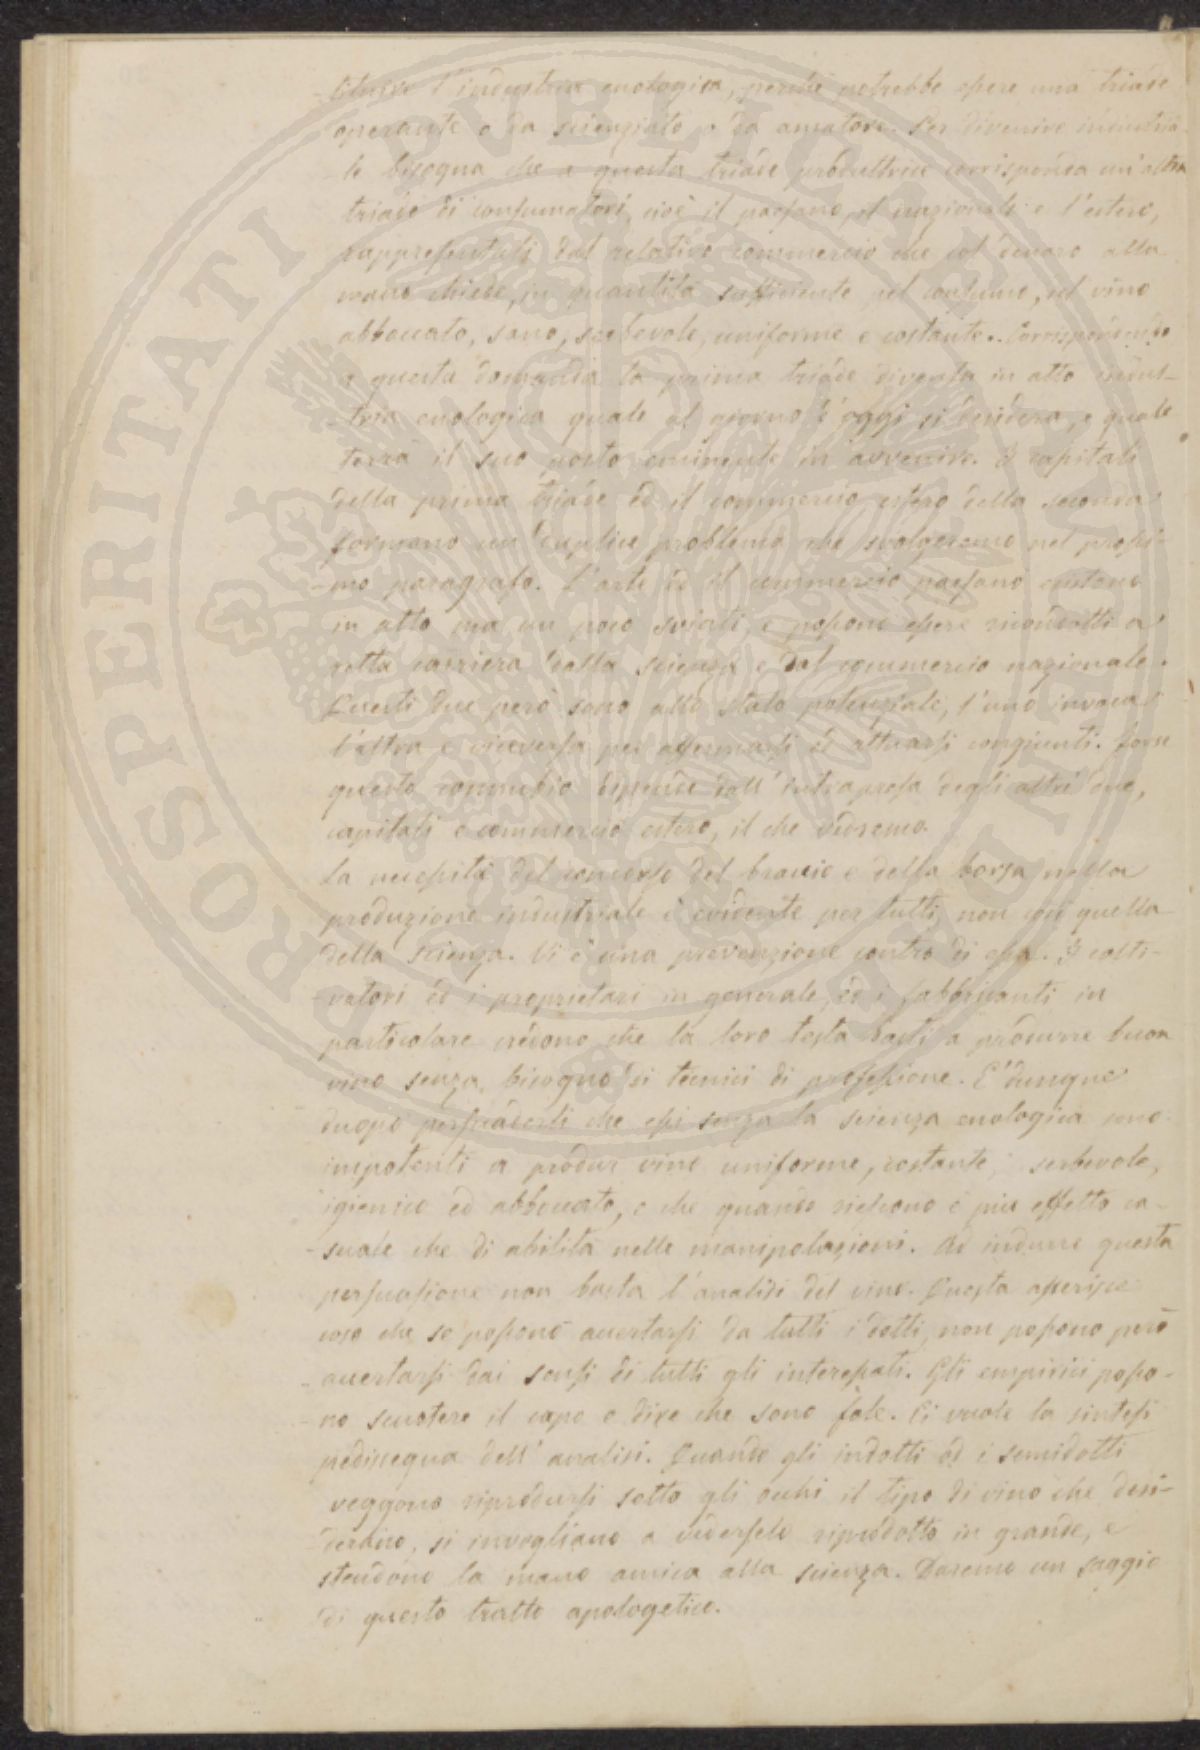 -tituire l'industria enologica, perchè potrebbe essere una triade
operante o da scienziato o da amatore. Per divenire industria-
-le bisogna che a questa triade produttrice corrisponda un'altra
triade di consumatori, cioè il paesano, il nazionale e l'estero,
rappresentati dal relativo commercio che col denaro alla
mano chiede, in quantità sufficiente pel consumo, il vino
abboccato, sano, serbevole, uniforme e costante. Corrispondendo
a questa domanda la prima triade diventa in atto indus-
-tria enologica quale al giorno d'oggi si desidera, e quale
terrà il suo posto eminente in avvenire. I capitali
della prima triade ed il commercio estero della seconda
formano un duplice problema che svolgeremo nel prossi-
-mo paragrafo. L'arte ed il commercio paesano esistono
in atto ma un poco sviati, e possono essere ricondotti a
retta carriera dalla scienza e dal commercio nazionale.
Questi due però sono allo stato potenziale, l'uno invoca
l'altra e viceversa per affermarsi ed attuarsi congiunti. Forse
questo connubio dipende dall'intrapresa degli altri due,
capitali e commercio estero, il che vedremo.
La necessità del concorso del braccio e della borsa nella
produzione industriale è evidente per tutti, non così quella
della scienza. Vi è una prevenzione contro di essa. I colti-
-vatori ed i proprietari in generale, ed i fabbricanti in
particolare credono che la loro testa basti a produrre buon
vino senza bisogno di tecnici di professione. E' dunque
duopo persuaderli che essi senza la scienza enologica sono
impotenti a produr vino uniforme, costante, serbevole,
igienico ed abboccato, e che quando riescono è più effetto ca-
-suale che di abilità nelle manipolazioni. Ad indurre questa
persuasione non basta l'analisi del vino. Questa asserisce
cose che se possono accertarsi da tutti i dotti, non possono però
accertarsi dai sensi di tutti gli interessati. Gli empirici posso-
-no scuotere il capo e dire che sono fole. Ci vuole la sintesi
pedissequa dell'analisi. Quando gli indotti ed i semidotti
veggono riprodursi sotto gli occhi il tipo di vino che desi-
-derano, si invogliano a vederselo riprodotto in grande, e
stendono la mano amica alla scienza. Daremo un saggio
di questo tratto apologetico.
PROSPERITATI PVBLICAE AVGENDAE